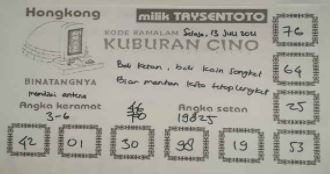 Hongkong
milik TAYSENTOTO
KODE RAMALAN Selasa, 13 Juli 2021
KUBURAN CINO
76
Beli ketan, beli kain songket
Biar mantan kita tetap lengket
64
BINATANGNYA
mendisi antena
Angka keramat
3-6
46
70
Angka setan
19825
25
42
01
30
98
19
53